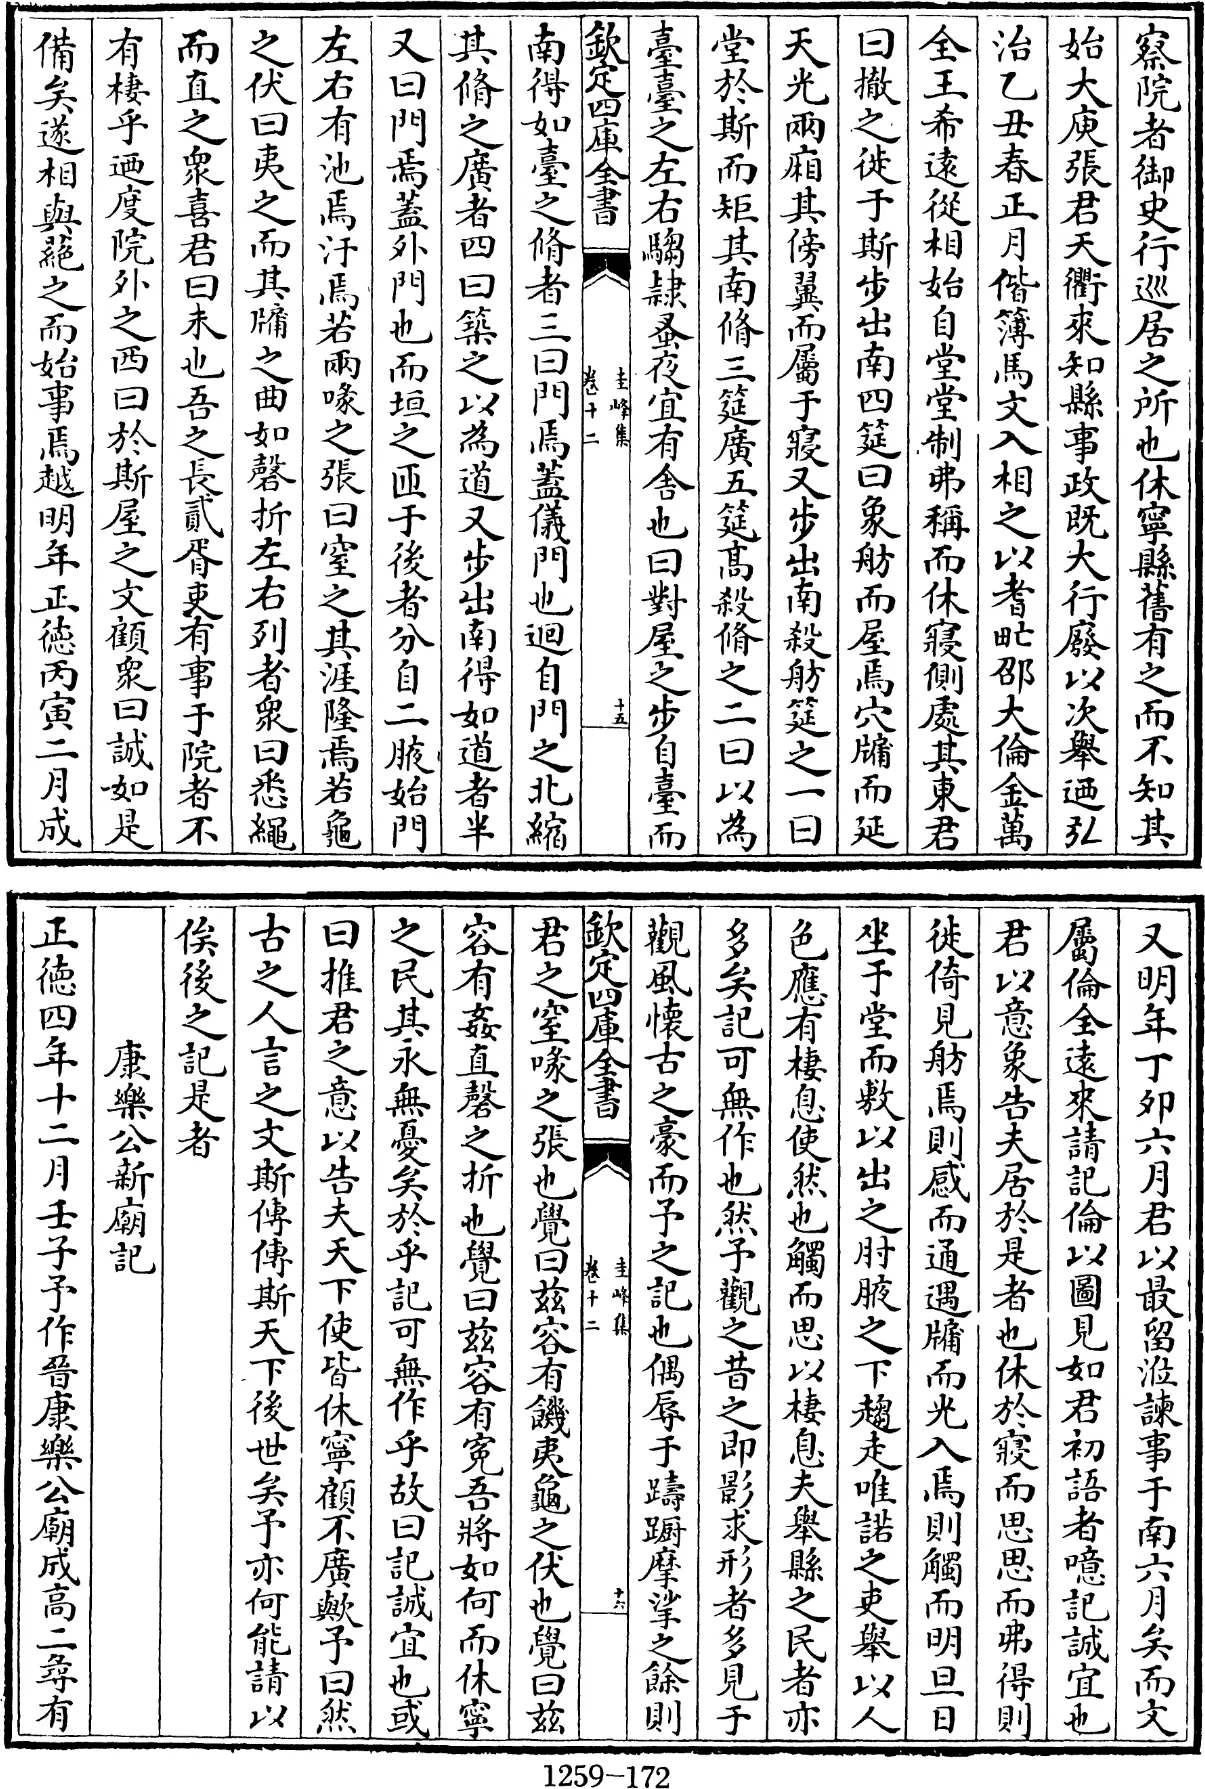 察院者御史行巡居之所也休寧縣舊有之而不知其
始大庾張君天衢來知縣事政既大行廢以次舉迺弘
治乙丑春正月偕簿馬文入相之以耆甿邵大倫金萬
全王希遠從相始自堂堂制弗稱而休寢側處其東君
曰撤之徙于斯步出南四筵曰象舫而屋焉穴牖而延
天光兩廂其傍翼而屬于寢又步出南殺舫筵之一曰
堂於斯而矩其南脩三筵廣五筵髙殺脩之二曰以為
臺臺之左右騶隸蚤夜宜有舎也曰對屋之步自臺而
欽定四庫全書
圭峰集
卷十二
十五
南得如臺之脩者三曰門焉蓋儀門也迴自門之北縮
其脩之廣者四曰築之以為道又步出南得如道者半
又曰門焉蓋外門也而垣之匝于後者分自二腋始門
左右有池焉汙焉若兩喙之張曰窒之其涯隆焉若龜
之伏曰夷之而其牖之曲如磬折左右列者衆曰悉繩
而直之衆喜君曰未也吾之長貳胥吏有事于院者不
有棲乎迺度院外之西曰於斯屋之文顧衆曰誠如是
備矣遂相與蕝之而始事焉越明年正德丙寅二月成
又明年丁卯六月君以最留涖諫事于南六月矣而文
屬倫全遠來請記倫以圖見如君初語者噫記誠宜也
君以意象告夫居於是者也休於寢而思思而弗得則
徙倚見舫焉則感而通遇牖而光入焉則觸而明旦日
坐于堂而敷以出之肘腋之下趨走唯諾之吏舉以人
色應有棲息使然也觸而思以棲息夫舉縣之民者亦
多矣記可無作也然予觀之昔之即影求形者多見于
觀風懷古之豪而予之記也偶辱于躊躕摩挲之餘則
欽定四庫全書
圭峰集
卷十二
十六
君之窒喙之張也覺曰兹容有饑夷龜之伏也覺曰兹
容有姦直磬之折也覺曰兹容有寃吾將如何而休寧
之民其永無憂矣於乎記可無作乎故曰記誠宜也或
曰推君之意以告夫天下使皆休寧顧不廣歟予曰然
古之人言之文斯傳傳斯天下後世矣予亦何能請以
俟後之記是者
康樂公新廟記
正德四年十二月壬子予作晉康樂公廟成高二尋有
1259-172